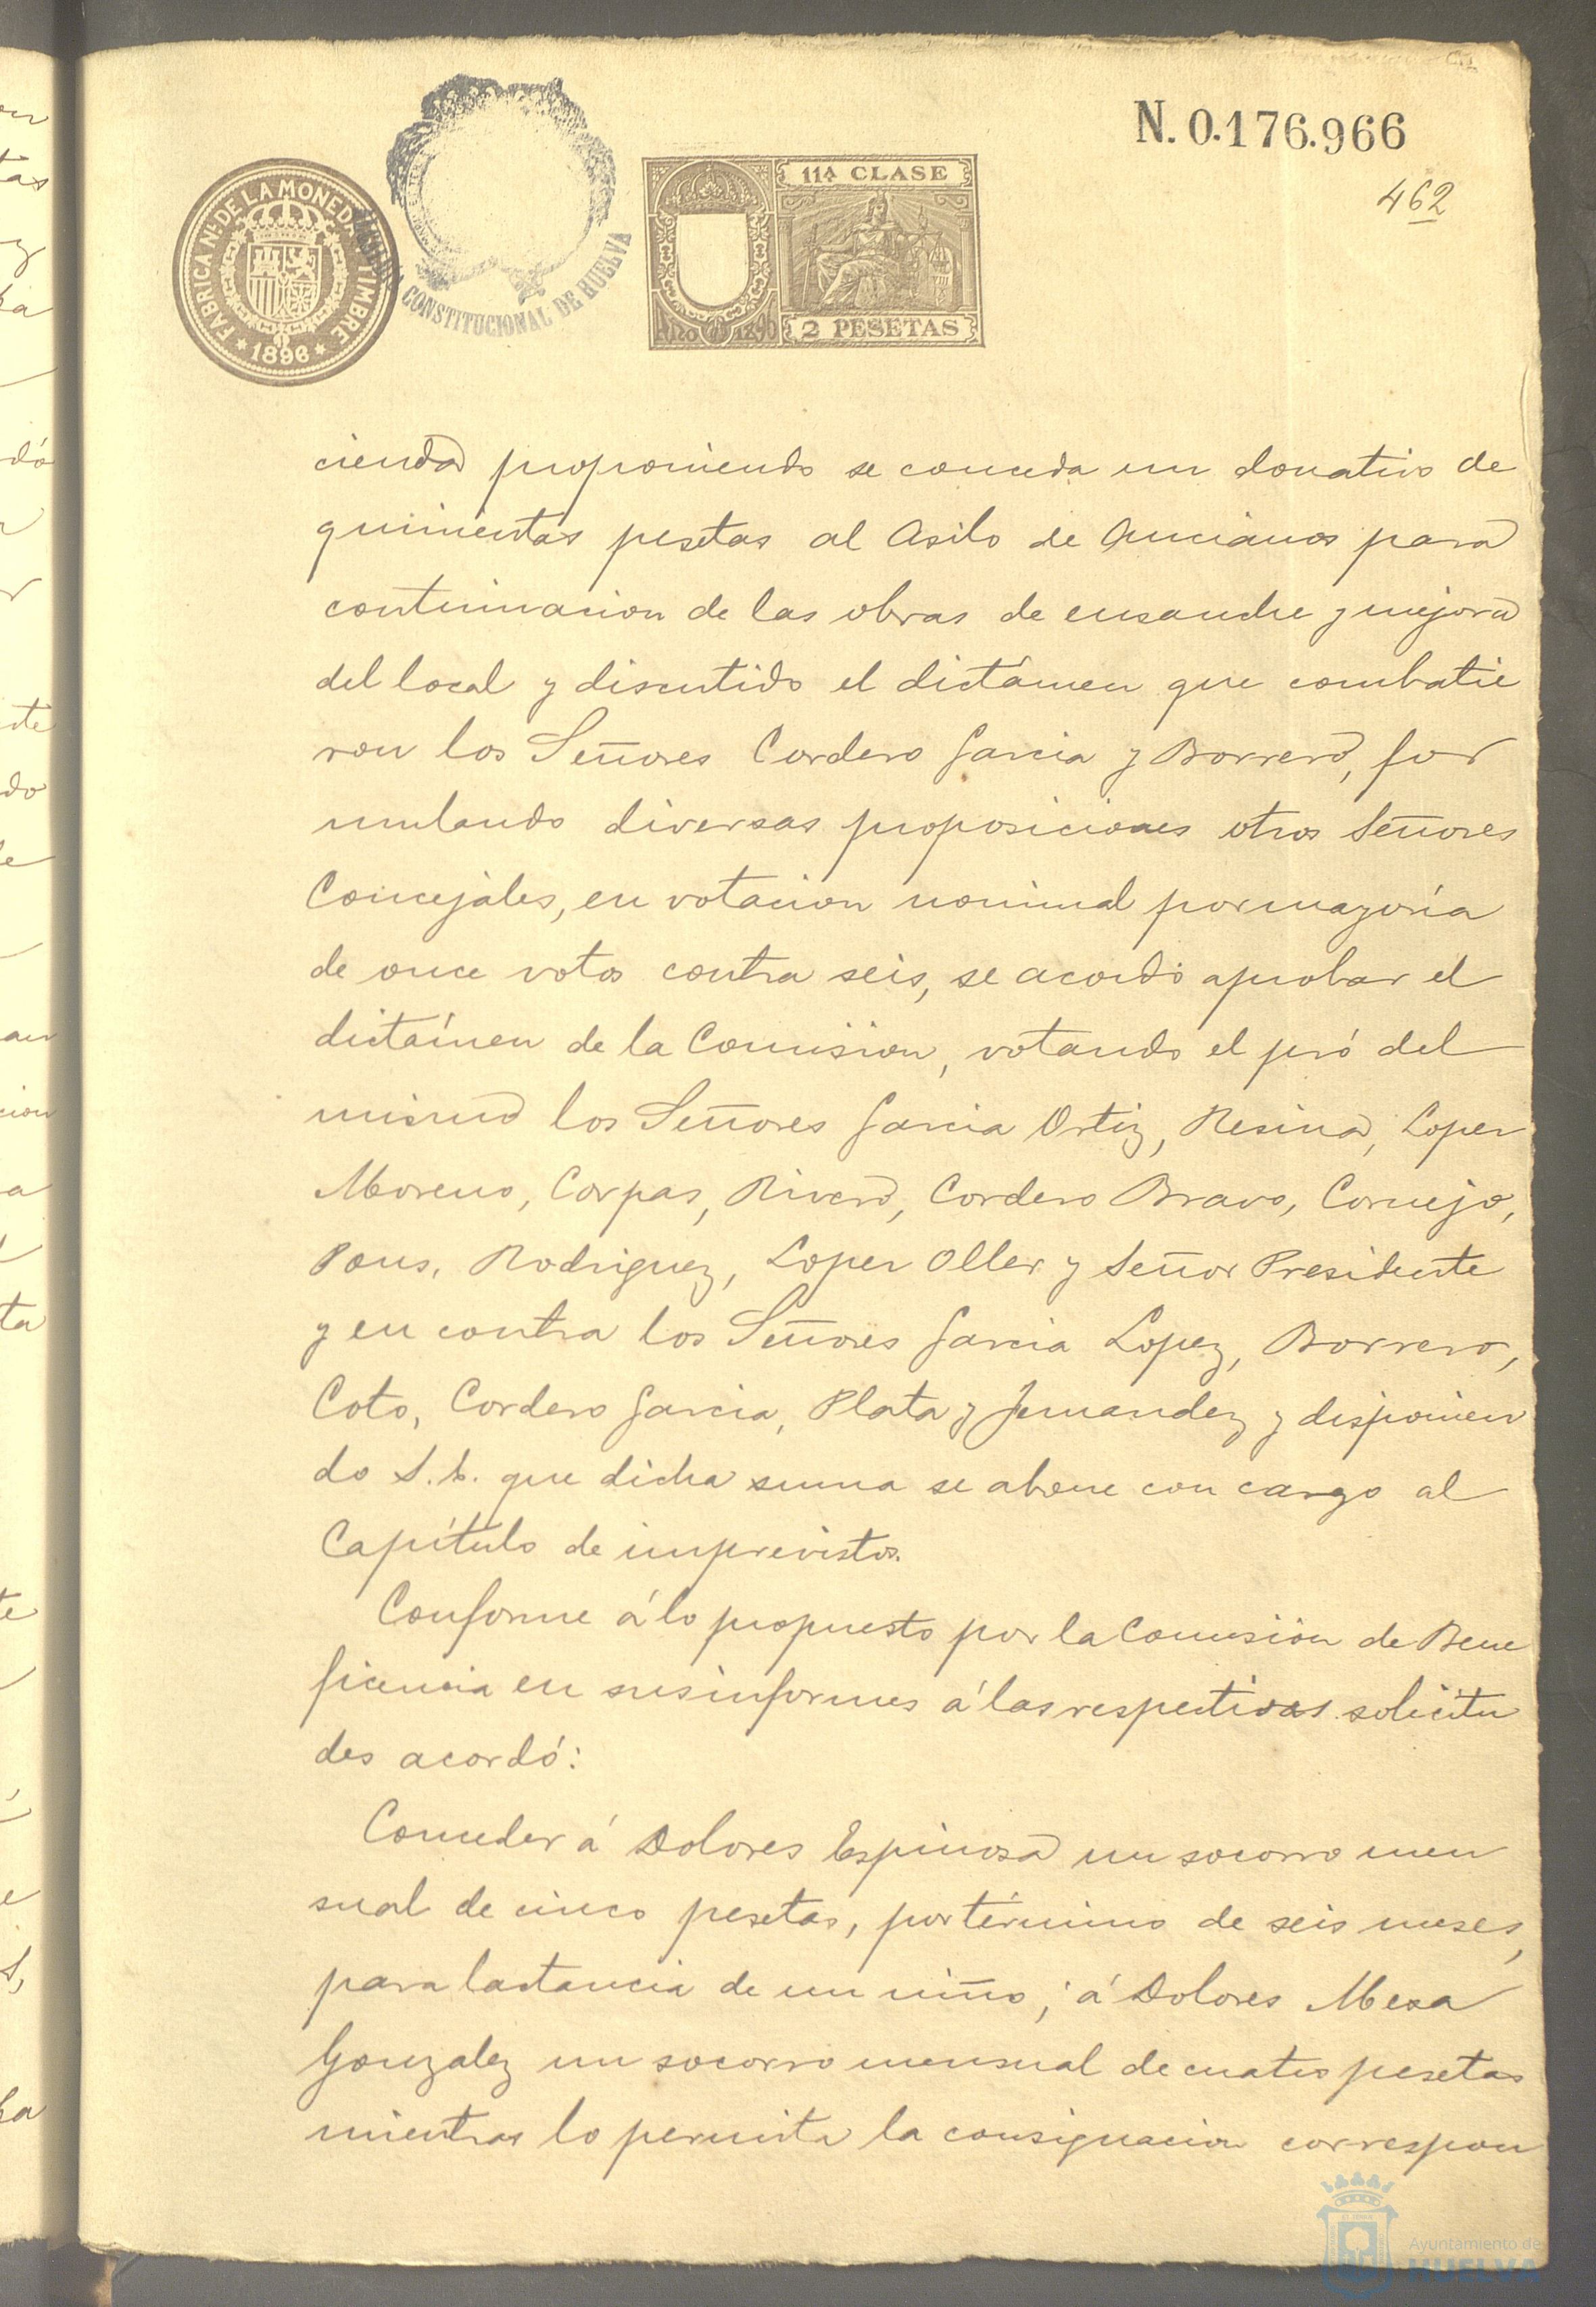 N. 0.176.966
462
FABRICA Nal. DE LA MONEDA Y TIMBRE
* 1896 *
CONSTITUCIONAL DE HUELVA
11ª CLASE
2 PESETAS
cienda proponiendo se conceda un donativo de
quinientas pesetas al Asilo de Ancianos para
continuacion de las obras de ensanche y mejora
del local y discutido el dictámen que combatie
ron los Señores Cordero Garcia y Borrero, for
mulando diversas proposiciones otros Señores
Concejales, en votacion nominal por mayoría
de once votos contra seis, se acordó aprobar el
dictámen de la Comision, votando el pró del
mismo los Señores Garcia Ortiz, Resina, Lopez
Moreno, Corpas, Rivero, Cordero Bravo, Cornejo,
Pons, Rodriguez, Lopez Oller y Señor Presidente
y en contra los Señores Garcia Lopez, Borrero,
Coto, Cordero Garcia, Plata y Fernandez y disponien
do S.E. que dicha suma se abone con cargo al
Capítulo de imprevistos.
Conforme á lo propuesto por la Comisión de Bene
ficencia en sus informes á las respectivas solicitu
des acordó:
Conceder á Dolores Espinosa un socorro men
sual de cinco pesetas, por término de seis meses,
para lactancia de un niño; á Dolores Mesa
Gonzalez un socorro mensual de cuatro pesetas
mientras lo permita la consignacion correspon
Ayuntamiento de
HUELVA